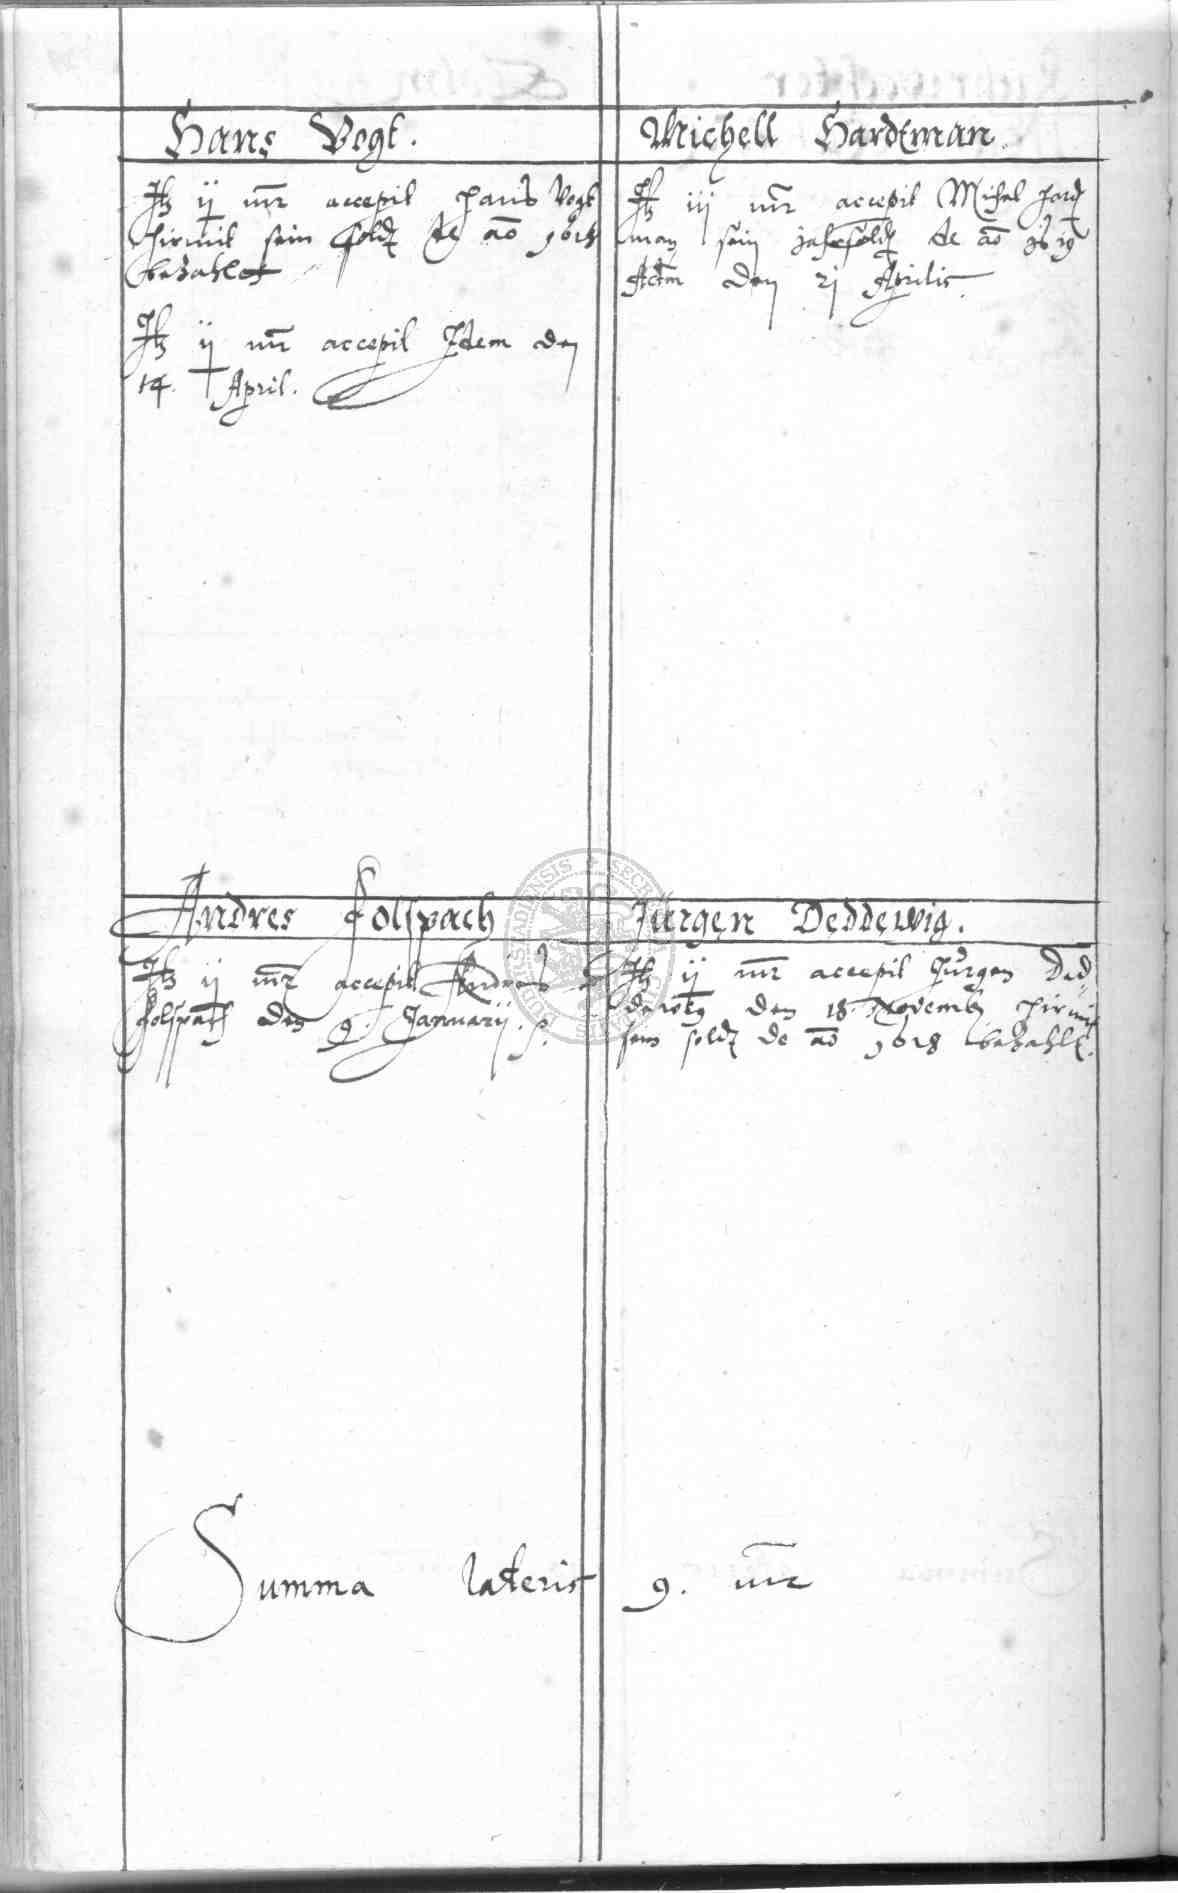 Hans Vogt.
Itz ij mr accepit Hans Vogt
hirmit sein soldt de ao 1618
bezahlet
Itz ij mr accepit Idem den
14. April.
Michell Hardtman.
Itz iij mr accepit Michel Hardt
man sein jahrsoldt de ao 1619
Actum den 21 Aprilis
Andres Folspach
Itz ij mr accepit Andres
Folspach den 9. Januarij.
Jürgen Deddewig.
Itz ij mr accepit Jürgen Ded
dewig den 18. Novemb. hirmit
sein soldt de ao 1618 bezahlt.
Summa lateris 9. mr